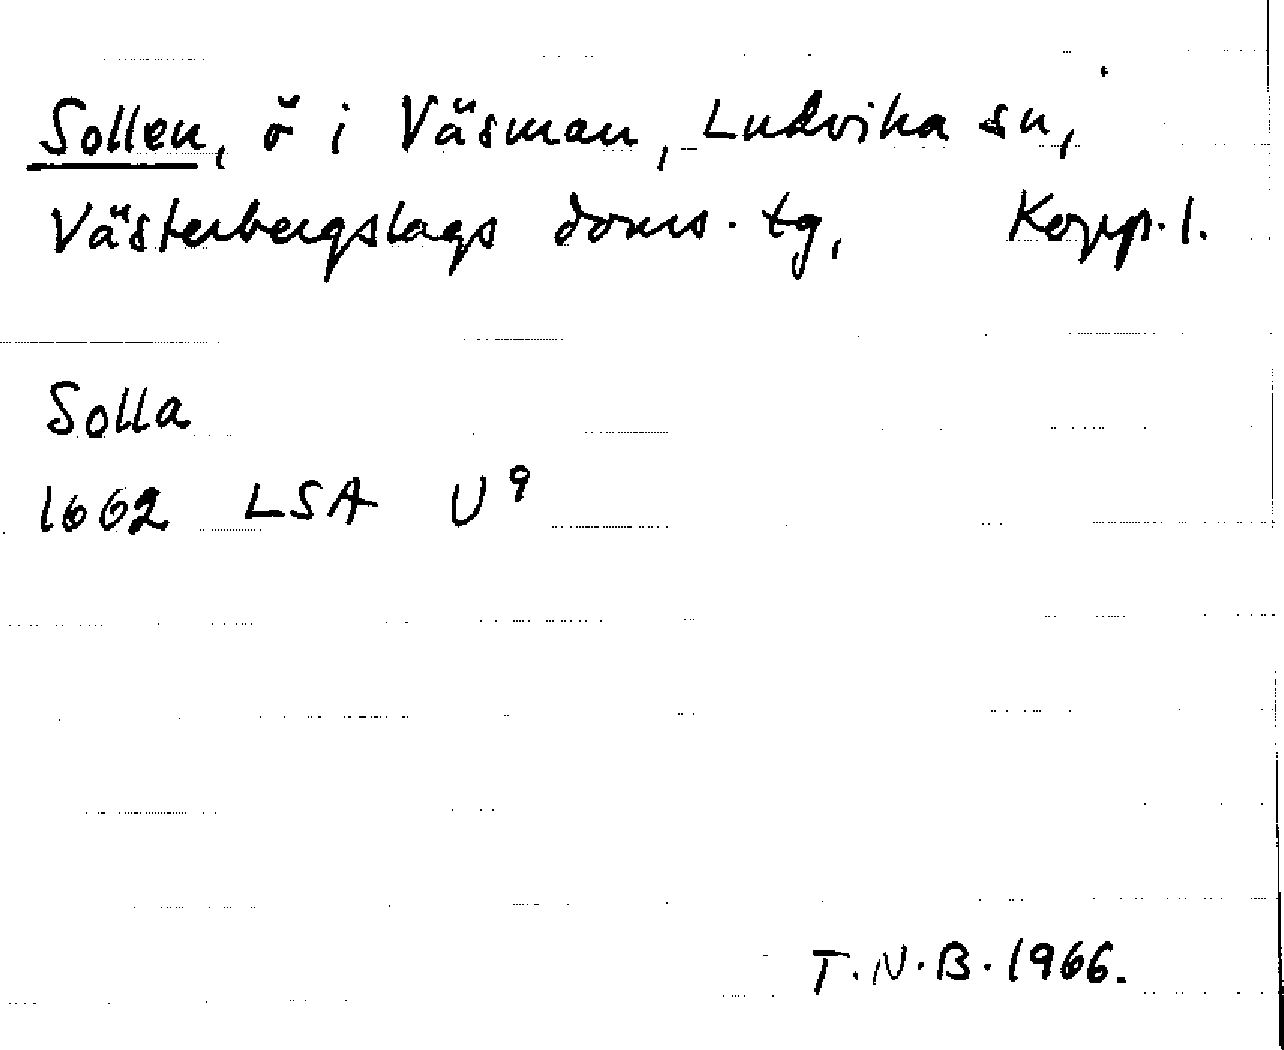 Sollen, ö i Väsman, Ludvika sn,
Västerbergslags doms. tg, Kopp. l.
Solla
1662 LSA U9
T.N.B. 1966.